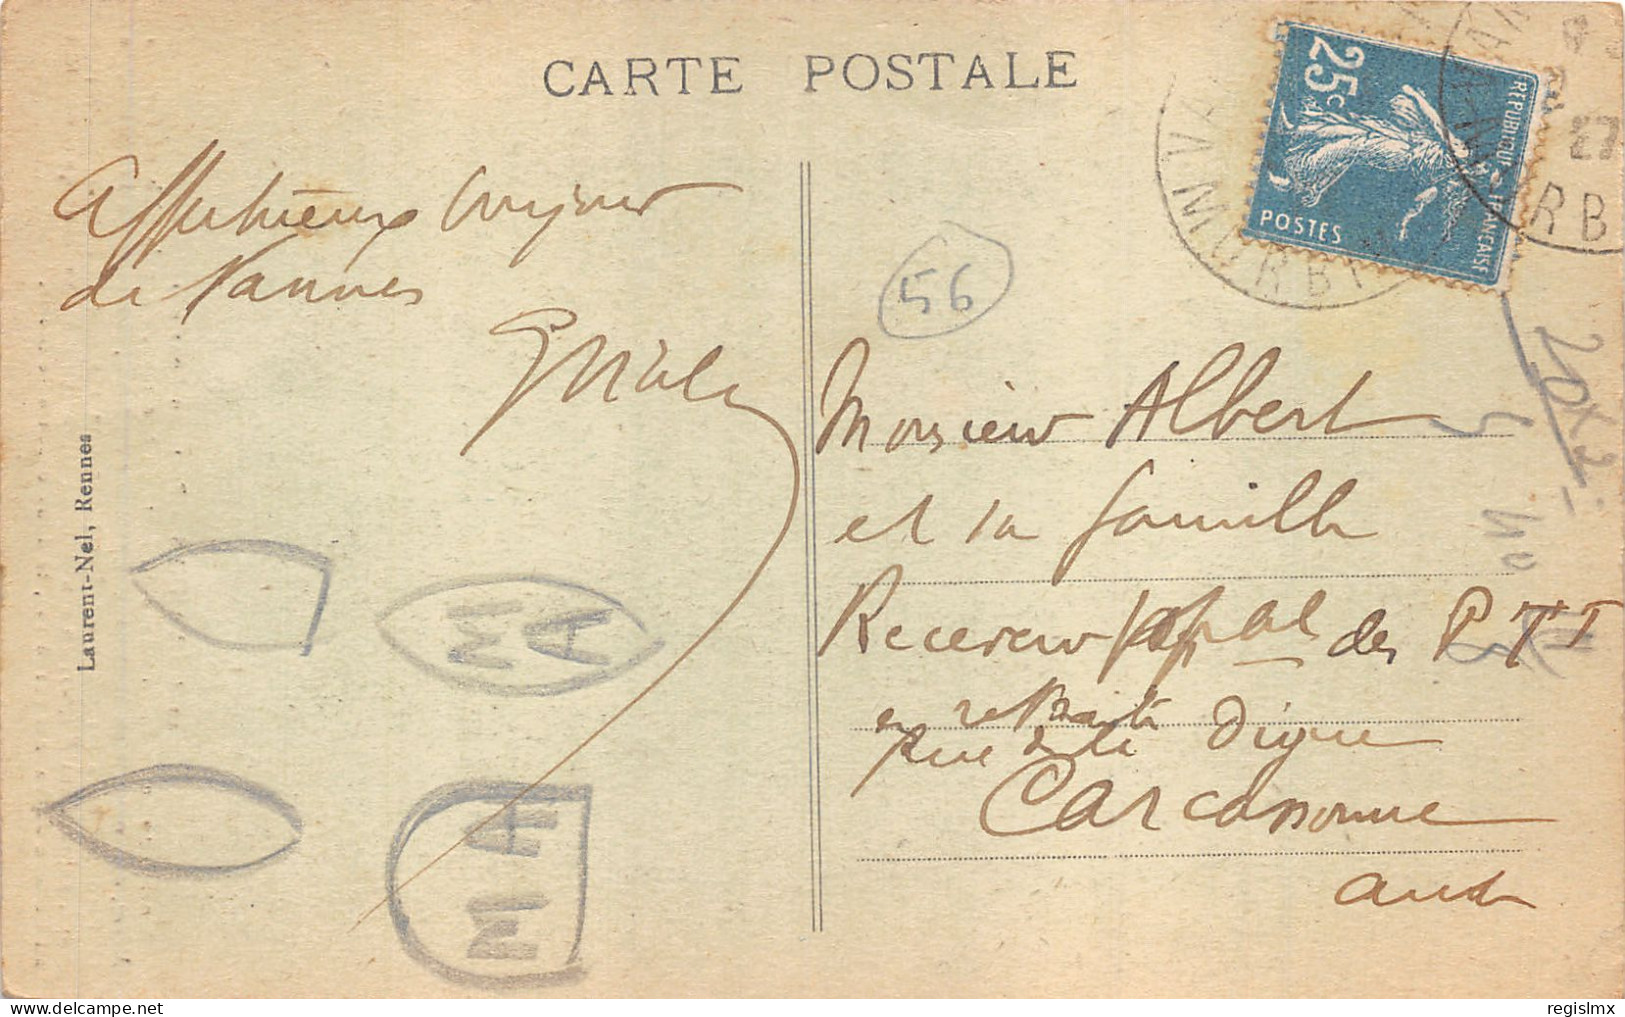 CARTE POSTALE
Affectueux bonjour
de Vannes
Laurent-Nel, Rennes
M A
M A
56
25c
POSTES
REPUBLIQUE FRANCAISE
VA
MORBIHAN
27
RB
Monsieur Albert
et sa famille
Receveur pal des PTT
en retraite
Rue de la Digue
Carcassonne
Aude